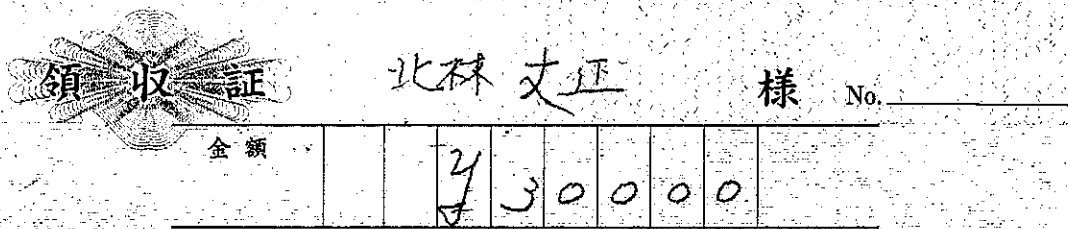 領収証 北林 丈正 様 No.
金額 ¥30000